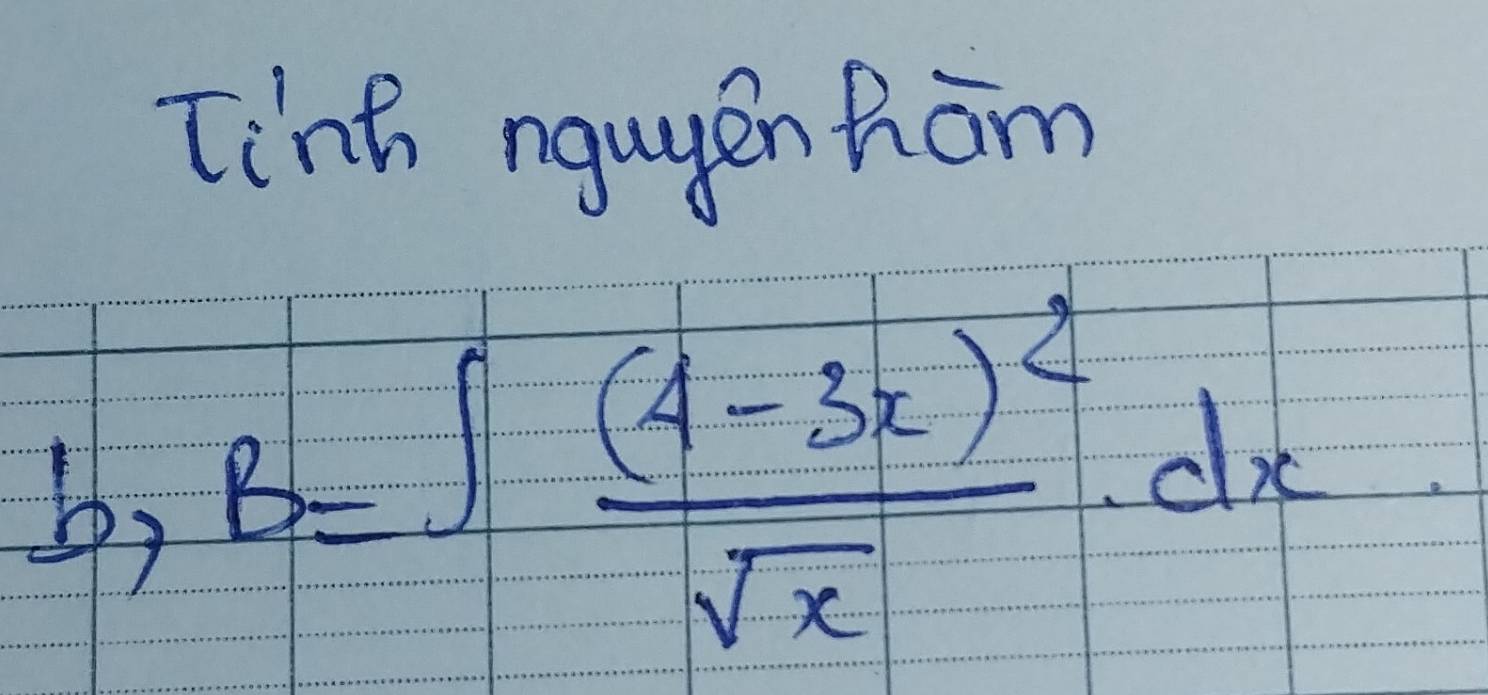 Tính nguyên hàm
b, B = ∫ (4 - 3x)² / √x . dx .